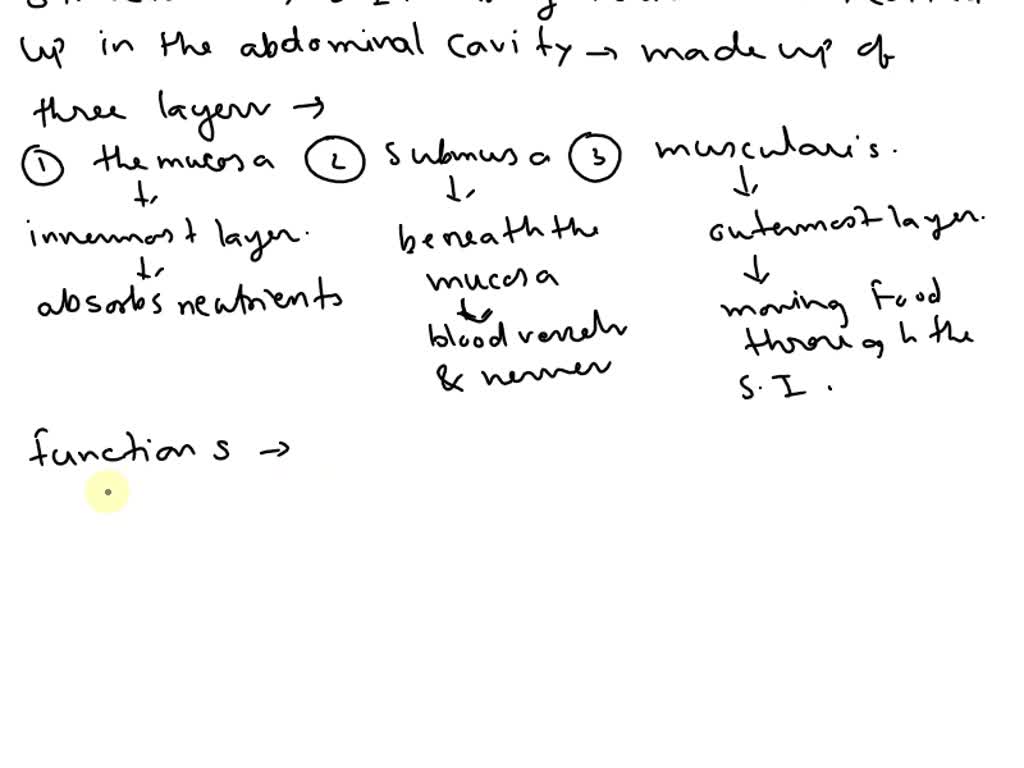 up in the abdominal cavity → made up of
three layers →
① the mucosa ② submusa ③ muscularis.
↓ ↓ ↓
innermost layer. beneath the outermost layer.
↓ mucosa ↓
absorbs neutrients ↓ moving food
blood vessels through the
& nerves S.I.
functions →